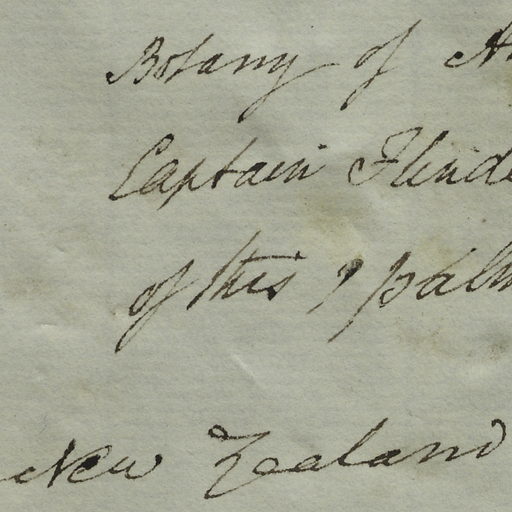 Botany of
Captain Flinde
of this ? palm
New Zealand